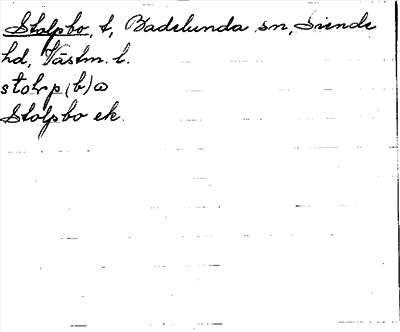 Stolpbo, t, Badelunda sn, Siende
hd, Västm. l.
stolp(b)ω
Stolpbo ek.